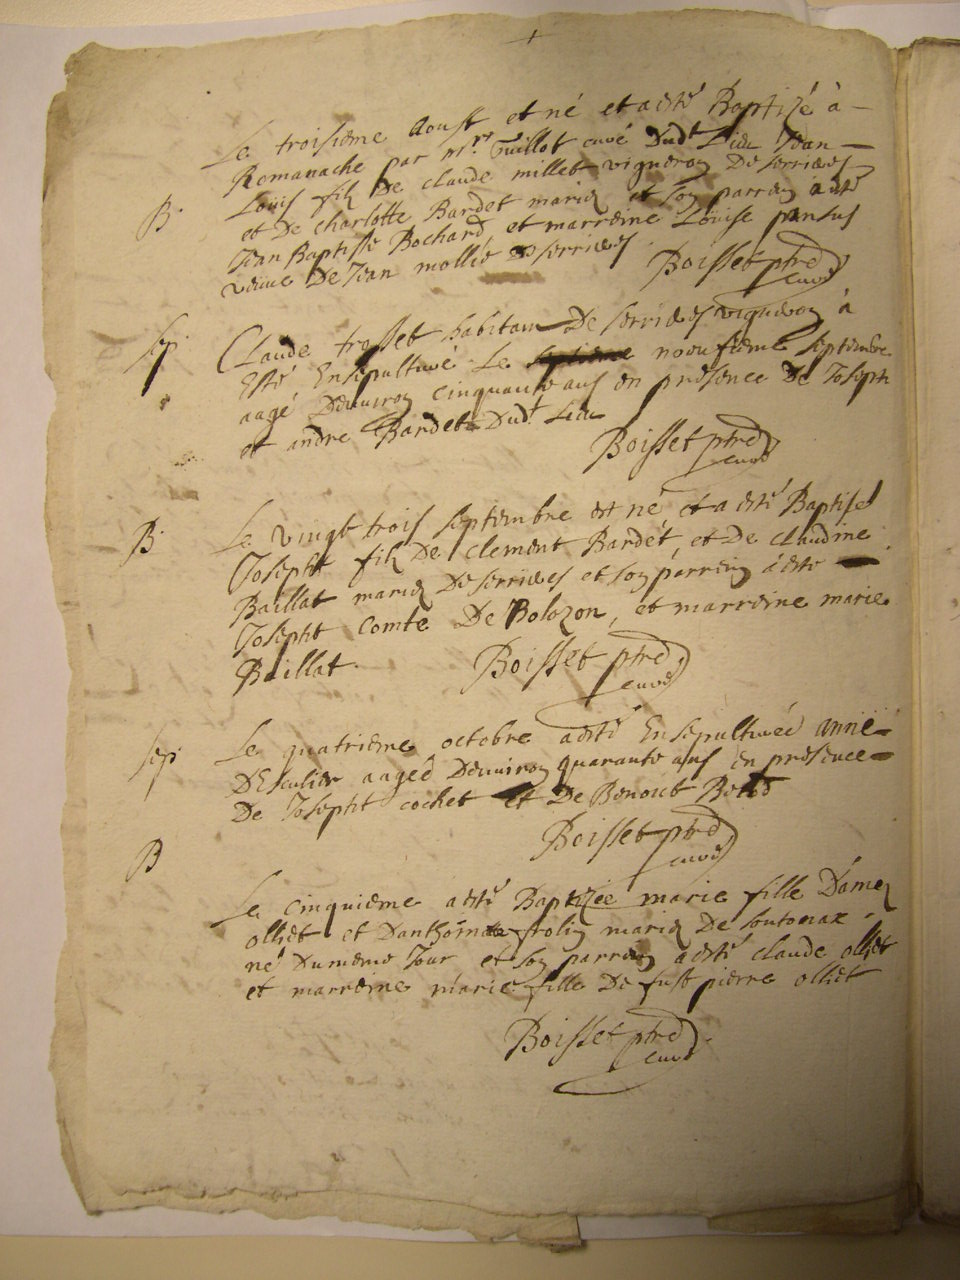 Le troisieme Aoust et né et a esté Baptizé à
Romanache par Mr. Guillot curé Dudt Lieu Jean
B. Loüis fils De Claude millet vigneron De serrieres
et De charlotte Bardet mariez et son parrein a esté
Jean Baptiste Bochard, et marreine Loüise pansus
veuve De Jean mollie De serrieres
Boisset ptre
curé
Sep. Claude trosset habitant De serrieres vigneron à
Esté Ensepulturé Le noeufieme septembre
aagé Denviron cinquante ans en presence De Joseph
et andre Bardet Dudt Lieu
Boisset ptre
curé
B. Le vingt trois septembre est né et a esté Baptisé
Josepht fils De clement Bardet, et De claudine
Baillat mariez De serrieres et son parrein à esté
Josepht Comte De Bolozon, et marreine marie
Baillat.
Boisset ptre
curé
Sep. Le quatrieme octobre a esté Ensepulturée anne
aageé Denviron quarante ans en presence
De Josepht cochet et De Benoit
Boisset ptre
curé
B
Le cinquieme a esté Baptizée marie fille
olliet et mariez De soutonax
né Du meme Jour et son parrein a esté claude olliet
et marreine marie fille De fust pierre olliet
Boisset ptre
curé